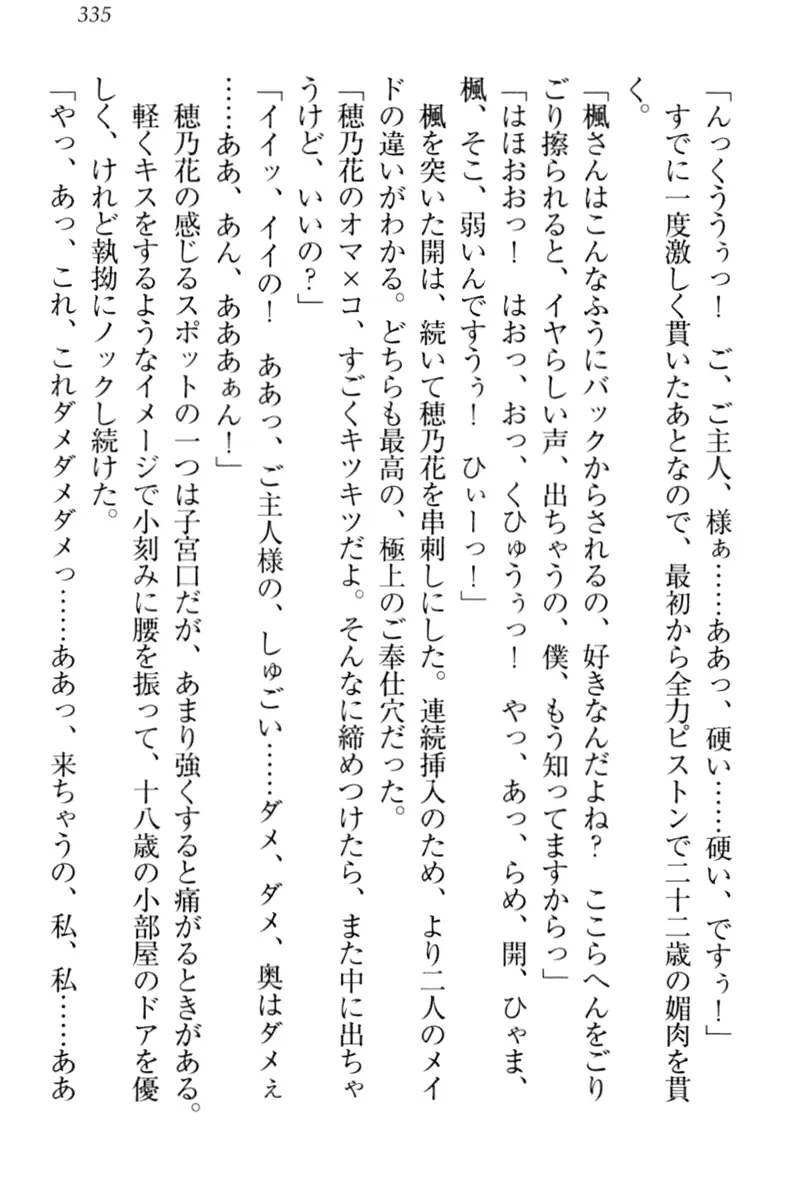 335
「んっくううぅっ！　ご、ご主人、様ぁ……ああっ、硬い……硬い、ですぅ！」
　すでに一度激しく貫いたあとなので、最初から全力ピストンで二十二歳の媚肉を貫
く。
「楓さんはこんなふうにバックからされるの、好きなんだよね？　ここらへんをごり
ごり擦られると、イヤらしい声、出ちゃうの、僕、もう知ってますからっ」
「はほおおっ！　はおっ、おっ、くひゅうぅっ！　やっ、あっ、らめ、開、ひゃま、
楓、そこ、弱いんですうぅ！　ひぃーっ！」
　楓を突いた開は、続いて穂乃花を串刺しにした。連続挿入のため、より二人のメイ
ドの違いがわかる。どちらも最高の、極上のご奉仕穴だった。
「穂乃花のオマ×コ、すごくキツキツだよ。そんなに締めつけたら、また中に出ちゃ
うけど、いいの？」
「イイッ、イイの！　ああっ、ご主人様の、しゅごい……ダメ、ダメ、奥はダメぇ
……ああ、あん、あああぁん！」
　穂乃花の感じるスポットの一つは子宮口だが、あまり強くすると痛がるときがある。
　軽くキスをするようなイメージで小刻みに腰を振って、十八歳の小部屋のドアを優
しく、けれど執拗にノックし続けた。
「やっ、あっ、これ、これダメダメダメっ……ああっ、来ちゃうの、私、私……ああ